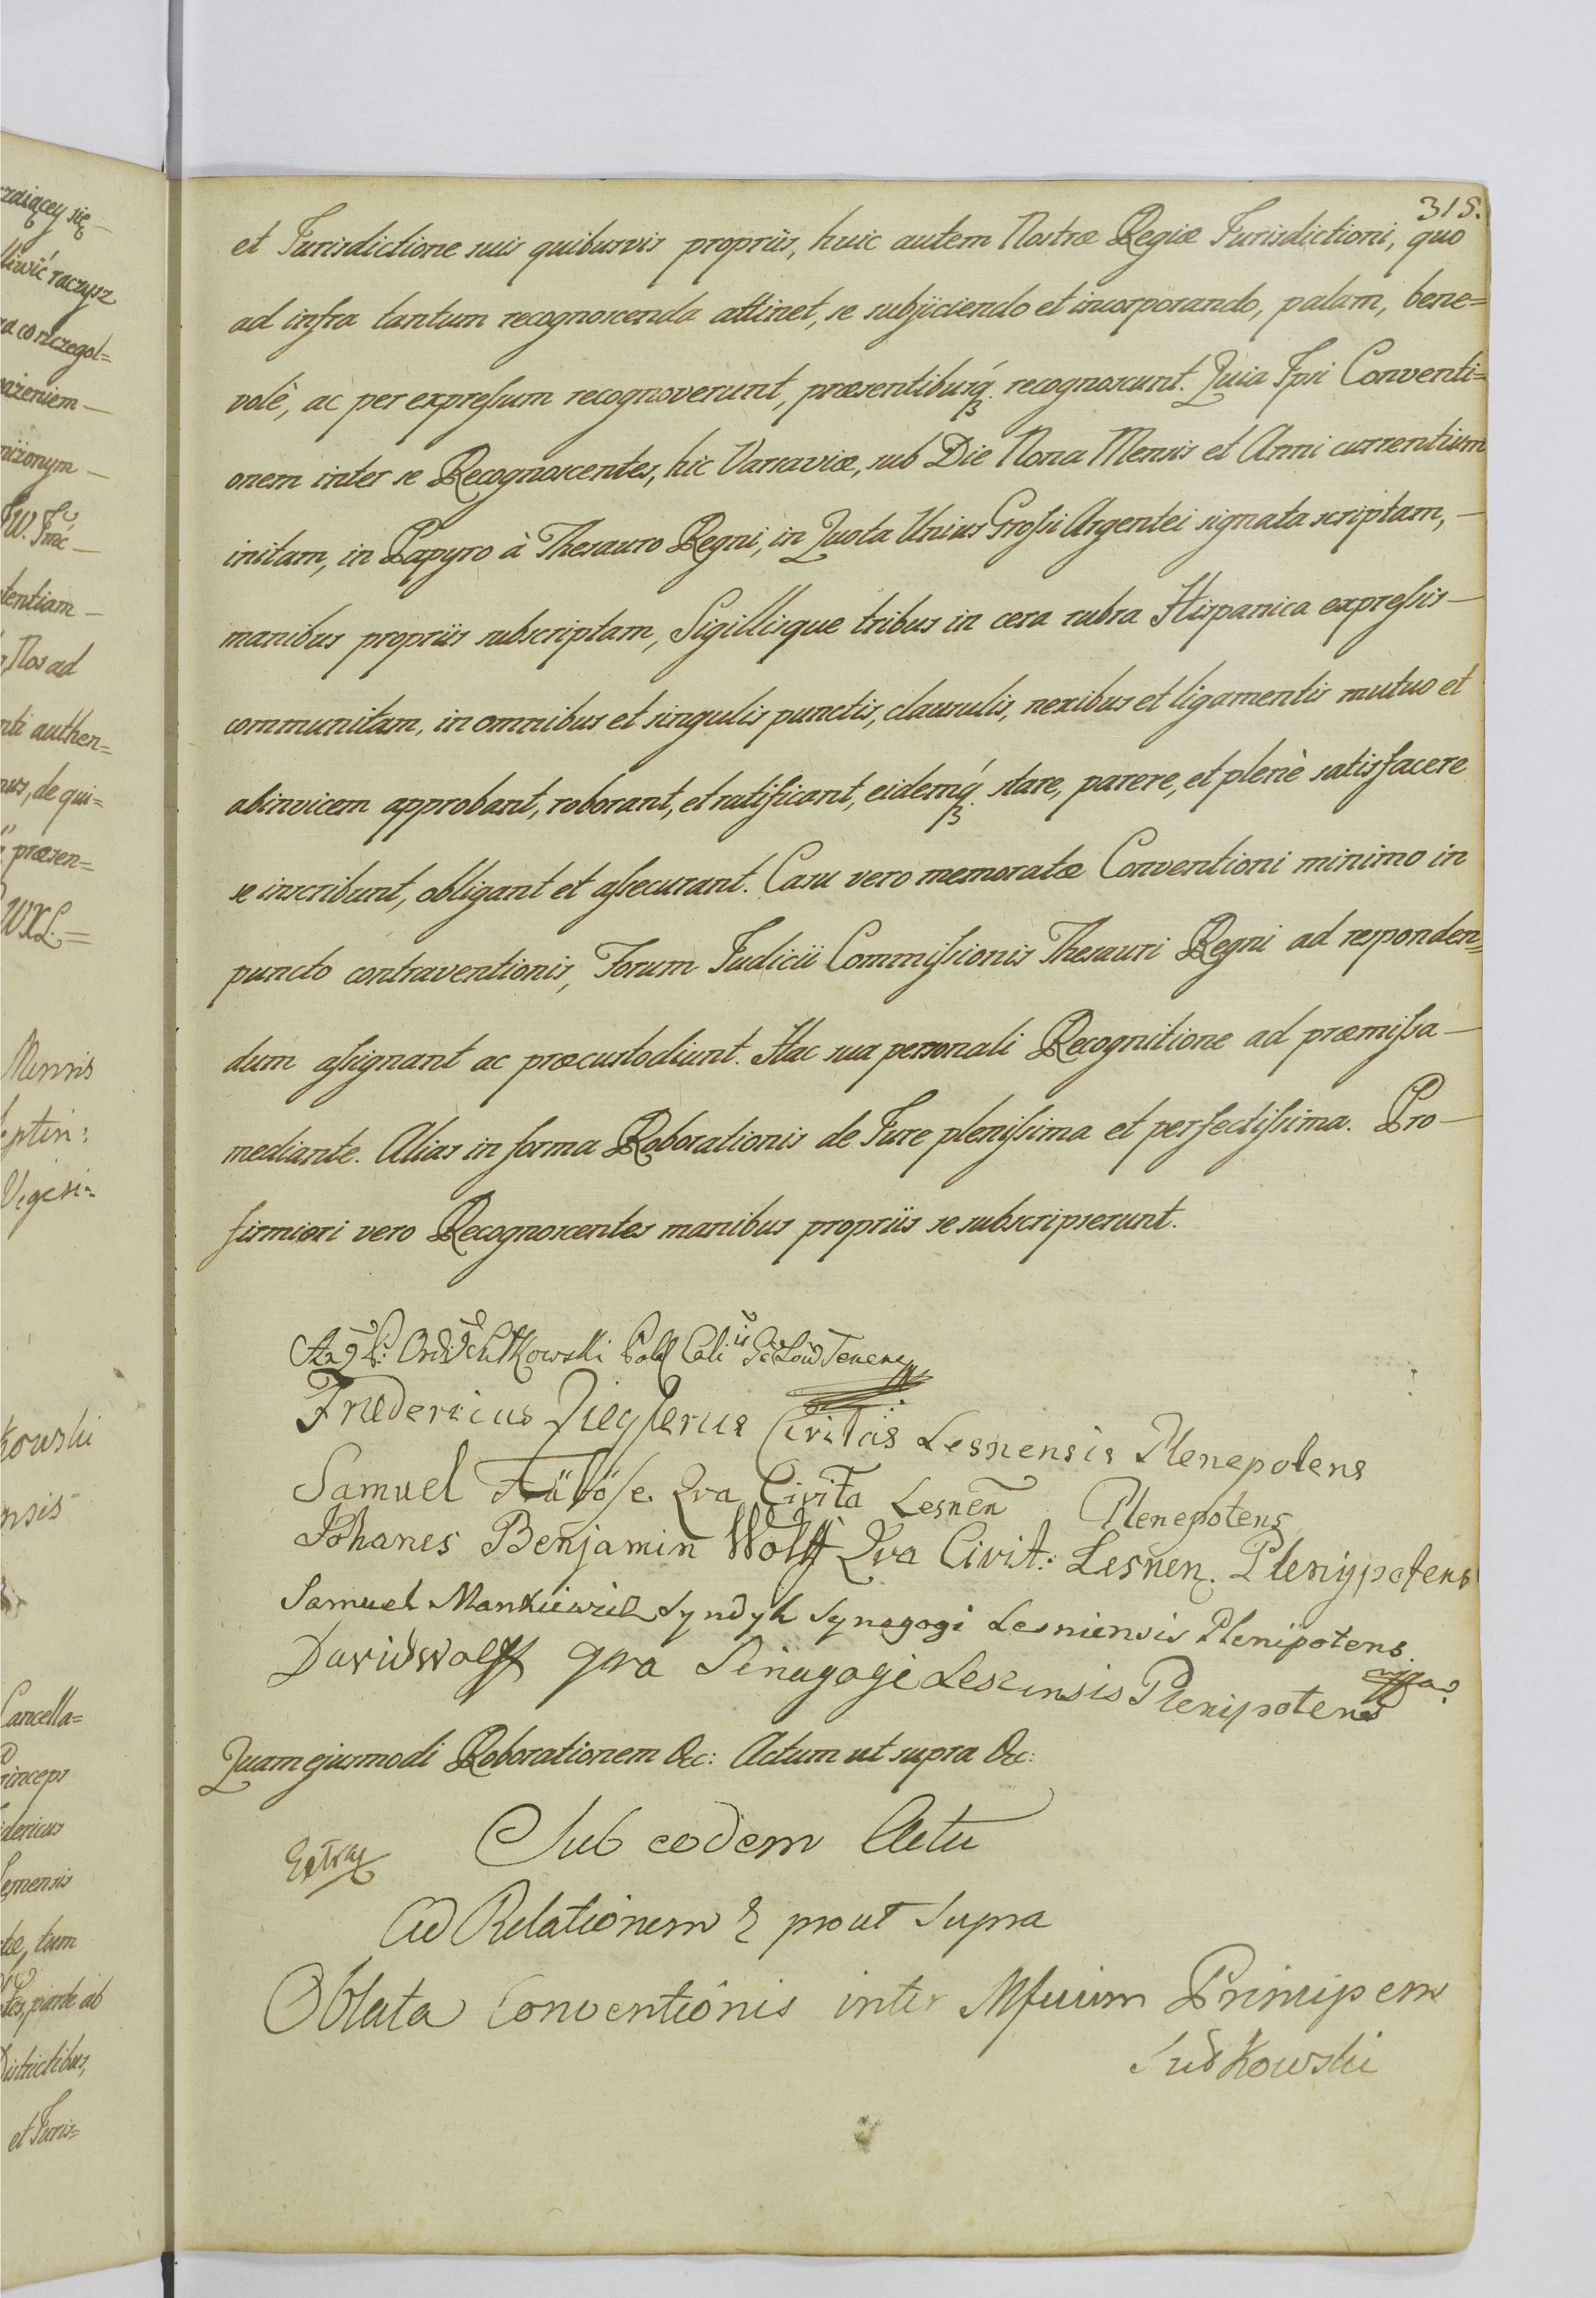 zaiącey się
liwić raczysz
za co szczegol=
ażeniem
niżonym
tentiam
Nos ad
nti authen=
nus, de qui=
præsen=
WXL.=
Mensis
eptin:
Vigesi=
kowski
nsis
Cancella=
rinceps
dericus
esnensis
tæ, tum
tes, parte ab
Districtibus,
et Juris=
315.
et Jurisdictione suis quibusvis propriis, huic autem Nostræ Regiæ Jurisdictioni, quo
ad infra tantum recognoscenda attinet, se subjiciendo et incorporando, palam, bene=
volè, ac per expreſsum recognoverunt, præsentibusq́. recognoscunt. Quia Ipsi Conventi=
onem inter se Recognoscentes, hic Varsaviæ, sub Die Nona Mensis et Anni currentium
initam, in Papyro à Thesauro Regni, in Quota Unius Groſsi Argentei signata scriptam,
manibus propriis subscriptam, Sigillisque tribus in cera rubra Hispanica expreſsis
communitam, in omnibus et singulis punctis, clausulis, nexibus et ligamentis mutuo et
abinvicem approbant, roborant, et ratificant, eidemq́. stare, parere, et plenè satisfacere
se inscribunt, obligant et aſsecurant. Casu vero memoratæ Conventioni minimo in
puncto contraventionis, Forum Judicii Commiſsionis Thesauri Regni ad responden=
dum aſsignant ac præcustodiunt. Hac sua personali Recognitione ad præmiſsa
mediante. Alias in forma Roborationis de Jure pleniſsima et perfectiſsima. Pro
firmiori vero Recognoscentes manibus propriis se subscripserunt.
Fridericus Zieglerus Civitas Lesnensis Plenepotens
Samuel Qva Civita Lesnen Plenepotens
Johanes Benjamin Wolff Qva Civit: Lesnen. Plenypotens
Samuel Mankiewicz Syndyk Synagogi Lesniensis Plenipotens.
David Wolff qva Sinagogi Lesensis Plenipotens
Quam ejusmodi Roborationem &c: Actum ut supra &c:
Sub eodem Actu
Extrad
Ad Relationem & prout supra
Oblata Conventionis inter Principem
Sułkowski